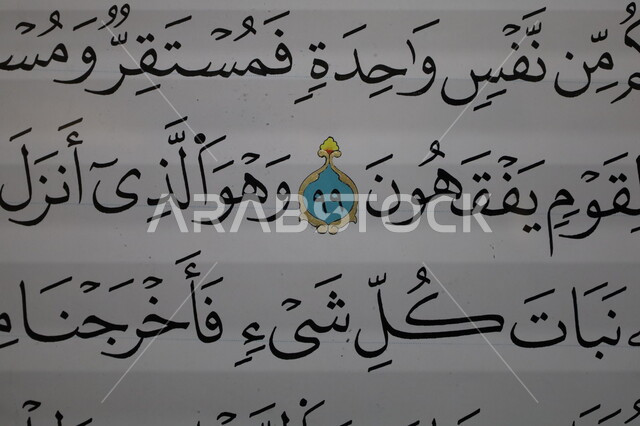 مِّن نَّفْسٍ وَاحِدَةٍ فَمُسْتَقَرٌّ
لِقَوْمٍ يَفْقَهُونَ ٩٨ وَهُوَ ٱلَّذِىٓ أَنزَلَ
نَبَاتَ كُلِّ شَىْءٍ فَأَخْرَجْنَا
ARABSTOCK